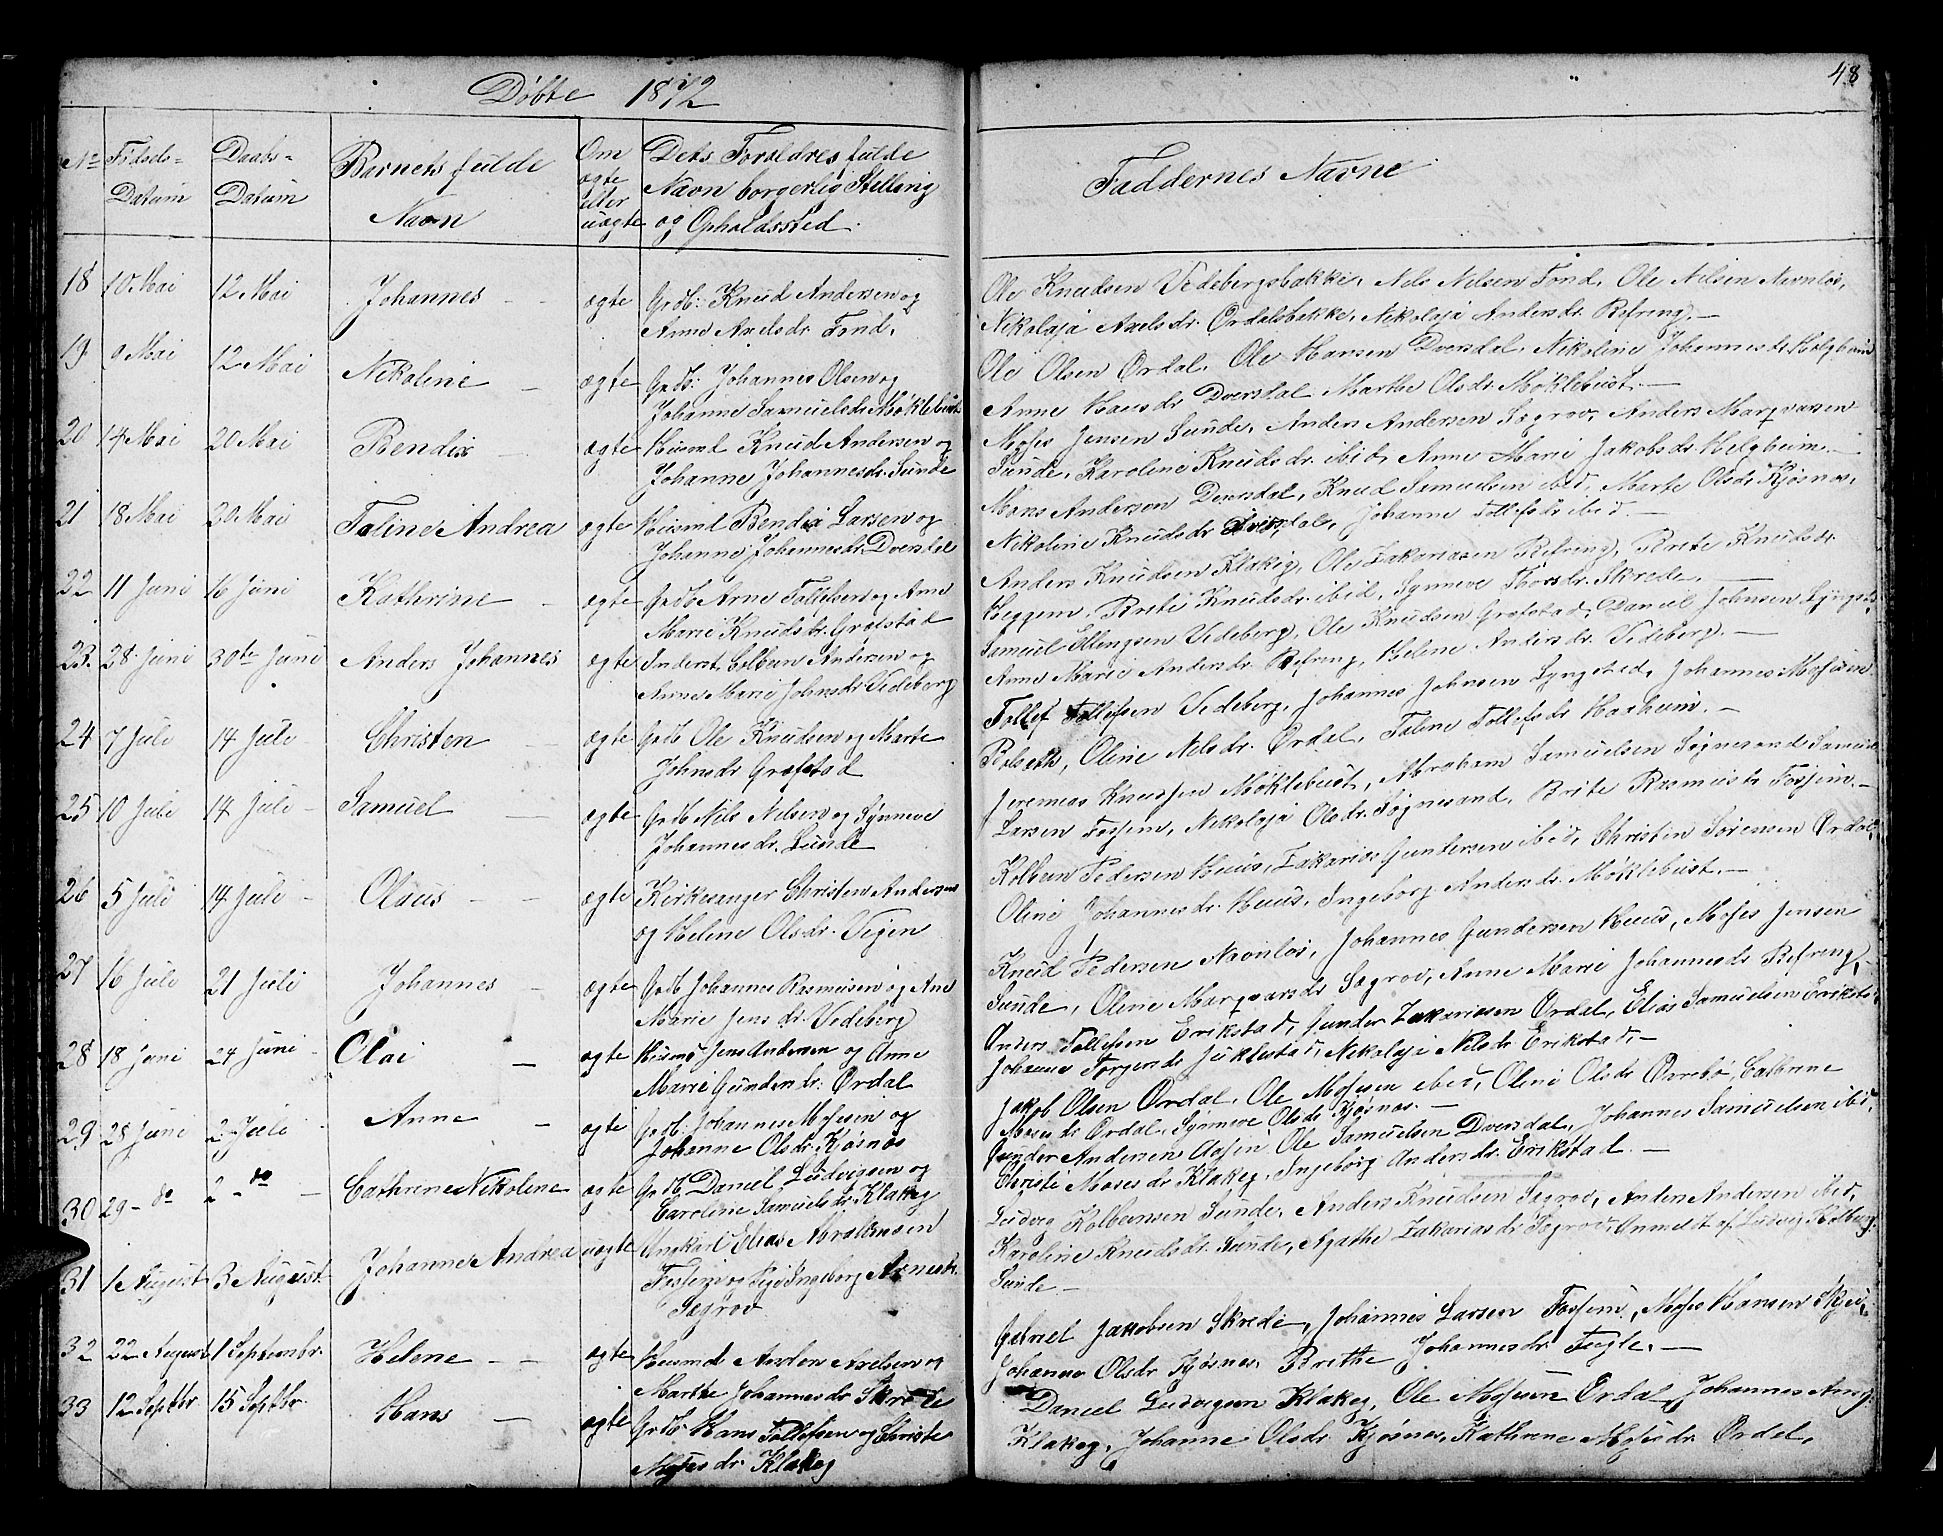 Døbte 1872
No
Fødsels=
Datum
Daabs=
Datum
Barnets fulde
Navn
Om
ægte
eller
uægte
Dets Foreldres fulde
Navn borgerlig Stilling
og Opholdssted.
18 10 Mai 12 Mai Johannes - ægte Grdb: Knud Andersen og
Anne Axelsdr. Fond.
19 9 Mai 12 Mai Nikoline - ægte Grdb: Johannes Olsen og
Johanne Samuelsdr Møklebust
20 14 Mai 20 Mai Bendix - ægte Huusmd Knud Andersen og
Johanne Johannesdr. Sunde
21 18 Mai 20 Mai Taline Andrea ægte Huusmd Bendix Larsen og
Johanne Johannesdr. Dversdal
22 11 Juni 16 Juni Kathrine - ægte Grdb Arne Tollefsen og Ane
Marie Knudsdr. Grøfstad
23. 28 Juni 30te Juni Anders Johannes ægte Inderst Colbeen Andersen og
Anne Marie Johnsdr Vedeberg
24 7 Juli 14 Juli Christen - ægte Grdb Ole Knudsen og Marte
Johnsdr Grøfstad
25 10 Juli 14 Juli - Samuel - ægte Grdb Nils Nilsen og Synneve
Johannesdr. Sunde
26 5 Juli 14 Juli - Olaus - - ægte Kirkesanger Christen Andersen
og Helene Olsdr. Veien
27 16 Juli 21 Juli Johannes - ægte Grdb Johannes Rasmusen og Ane
Marie Jensdr. Vedeberg
28 18 Juni 24 Juni - Olai - ægte Huusmd Jens Andersen og Anne
Marie Gundersdr: Ordal
29 28 Juni 2 Juli - Anne - ægte Grdb: Johannes Mosesen og
Johanne Olsdr. Kjøsnæs
30 29 - do 2 - do - Cathrene Nikoline ægte Grdb. Daniel Ludvigsen og
Caroline Samuelsdr. Klakeg
31 1 August 3 August Johanne Andrea uægte Ungkarl Elias Abrahamsen
Fossem og Pige Ingeborg Arnesdr.
Søgrov
32 22 August 1 Septembr. Helene - - ægte Huusmd Anders Axelsen og
Marthe Johannesdr Skrede
33 12 Septbr 15 Septbr. Hans - ægte Grdb Hans Tollefsen og Christe
Mosesdr. Klakeg
48
Faddernes Navne
Ole Knudsen Vedebergsbakke, Nils Nilsen Fond, Ole Nilsen Navnløs,
Nikolaja Axelsdr. Ordalsbakke, Nikolaja Andersdr. Refreng. -
Ole Olsen Ordal, Ole Hansen Dversdal, Nikoline Johannesdr. Helgheim
Anne Hansdr Dversdal Marthe Olsdr. Møklebust. -
Moses Jensen Sunde, Anders Andersen Søgrov, Anders Marqvarsen
Sunde, Karoline Knudsdr. ibid, Anne Marie Jakobsdr. Helgheim. -
Mons Andersen Dversdal, Knud Samuelsen ibid, Marte Olsdr. Kjøsnæs,
Nikoline Knudsdr Dversdal, Johanne Tollefsdr ibid. -
Anders Knudsen Klakeg, Ole Zakariasen Refreng, Brite Knudsdr
Heggem, Brite Knudsdr. ibid, Synneve Thorsdr. Skrede. -
Samuel Ellingsen Vedeberg, Ole Knudsen Grøfstad, Daniel Johnsen Lyngstad,
Anne Marie Andersdr. Refreng, Helene Andersdr. Vedeberg. -
Tollef Tollefsen Vedeberg, Johannes Johnsen Lyngstad, Johannes Mosesen
Bolseth, Oline Nilsdr. Ordal, Taline Tollefsdr. Harheim. -
Jeremias Knudsen Møklebust, Abraham Samuelsen Søgnesand, Samuel
Larsen Fossem, Nikolaja Olsdr. Søgnesand, Brite Rasmusdr Fossem. -
Kolbeen Pedersen Huus, Zakarias Gundersen ibid, Christen Sørensen Ordal,
Oline Johannesdr. Huus, Ingeborg Andersdr. Møklebust. -
Knud Pedersen Navnløs, Johannes Gundersen Huus, Moses Jensen
Sunde, Oline Marqvarsdr Søgrov, Anne Marie Johannesdr. Refreng, -
Anders Tollefsen Erikstad, Gunder Zakariasen Ordal, Elias Samuelsen Erikstad
Johanne Torgersdr Juklestad, Nikolaja Nilsdr Erikstad, -
Jakob Olsen Ordal, Ole Mosesen ibid, Oline Olsdr Øvrebø, Cathrine
Mosesdr Ordal, Synneve Olsdr Kjøsnæs. -
Gunder Andersen Aasen, Ole Samuelsen Dversdal, Johannes Samuelsen ibid,
Christe Mosesdr Klakeg, Ingeborg Andersdr. Erikstad. -
Ludvig Kolbeensen Sunde, Anders Knudsen Søgrov, Anders Andersen ibid,
Karoline Knudsdr. Sunde, Agathe Zakariasdr Søgrov, Anmeldt af Ludvig Kolbeens.
Sunde. -
Gabriel Jakobsen Skrede, Johannes Larsen Fossem, Moses Hansen
Johanne Olsdr Kjøsnæs, Brithe Johannesdr Fugle. -
Daniel Ludvigsen Klakeg, Ole Mosesen Ordal, Johannes
Klakeg, Johanne Olsdr Kjøsnæs, Kathrene Mosesdr. Ordal,